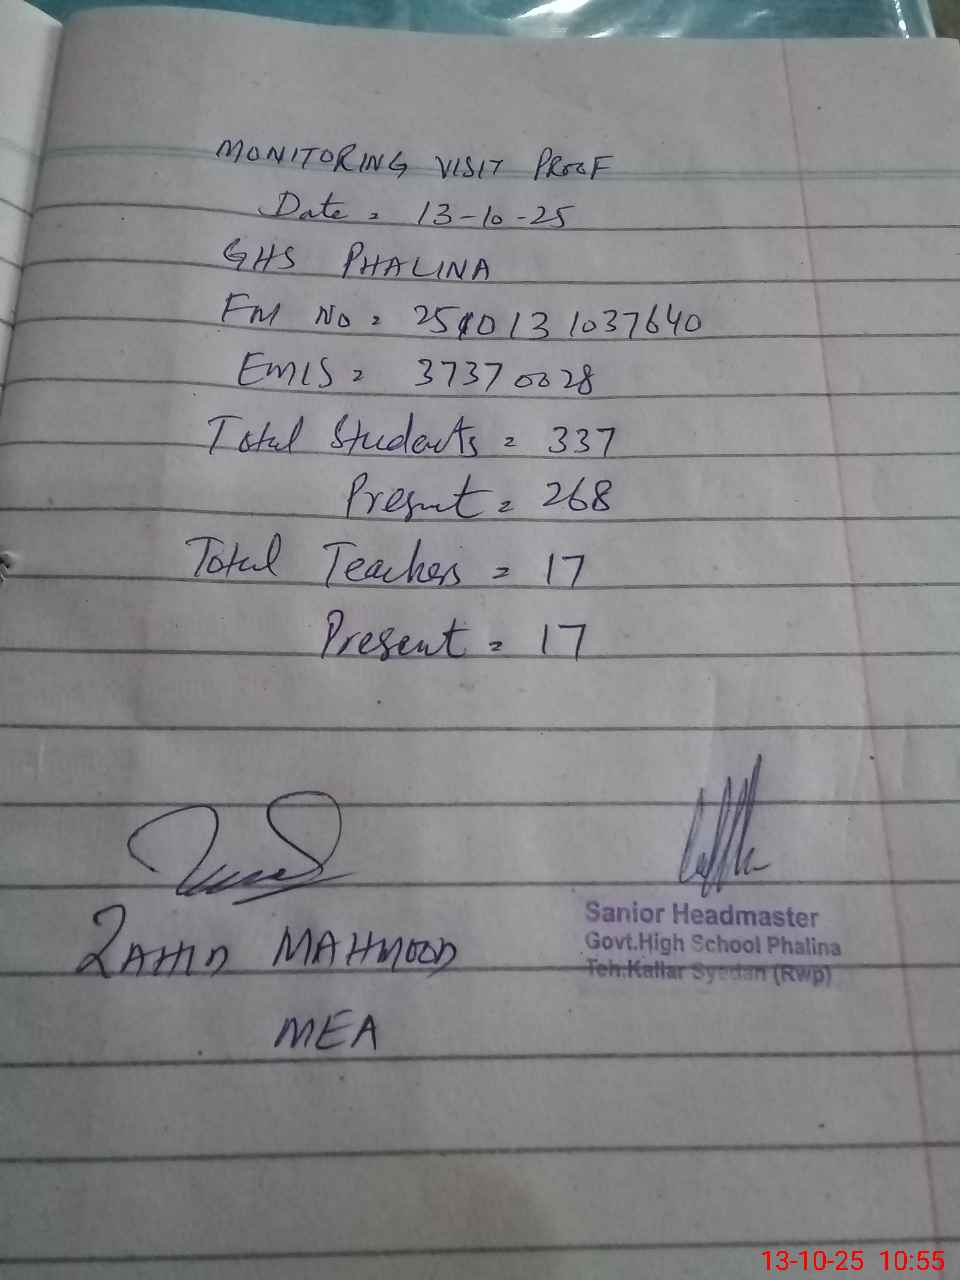 MONITORING VISIT PROOF
Date = 13-10-25
GHS PHALINA
FM NO = 251013 1037640
EMIS = 37370028
Total Students = 337
Present = 268
Total Teachers = 17
Present = 17
ZAHID MAHMOOD
MEA
Sanior Headmaster
Govt.High School Phalina
Teh:Kallar Syedan (Rwp)
13-10-25 10:55